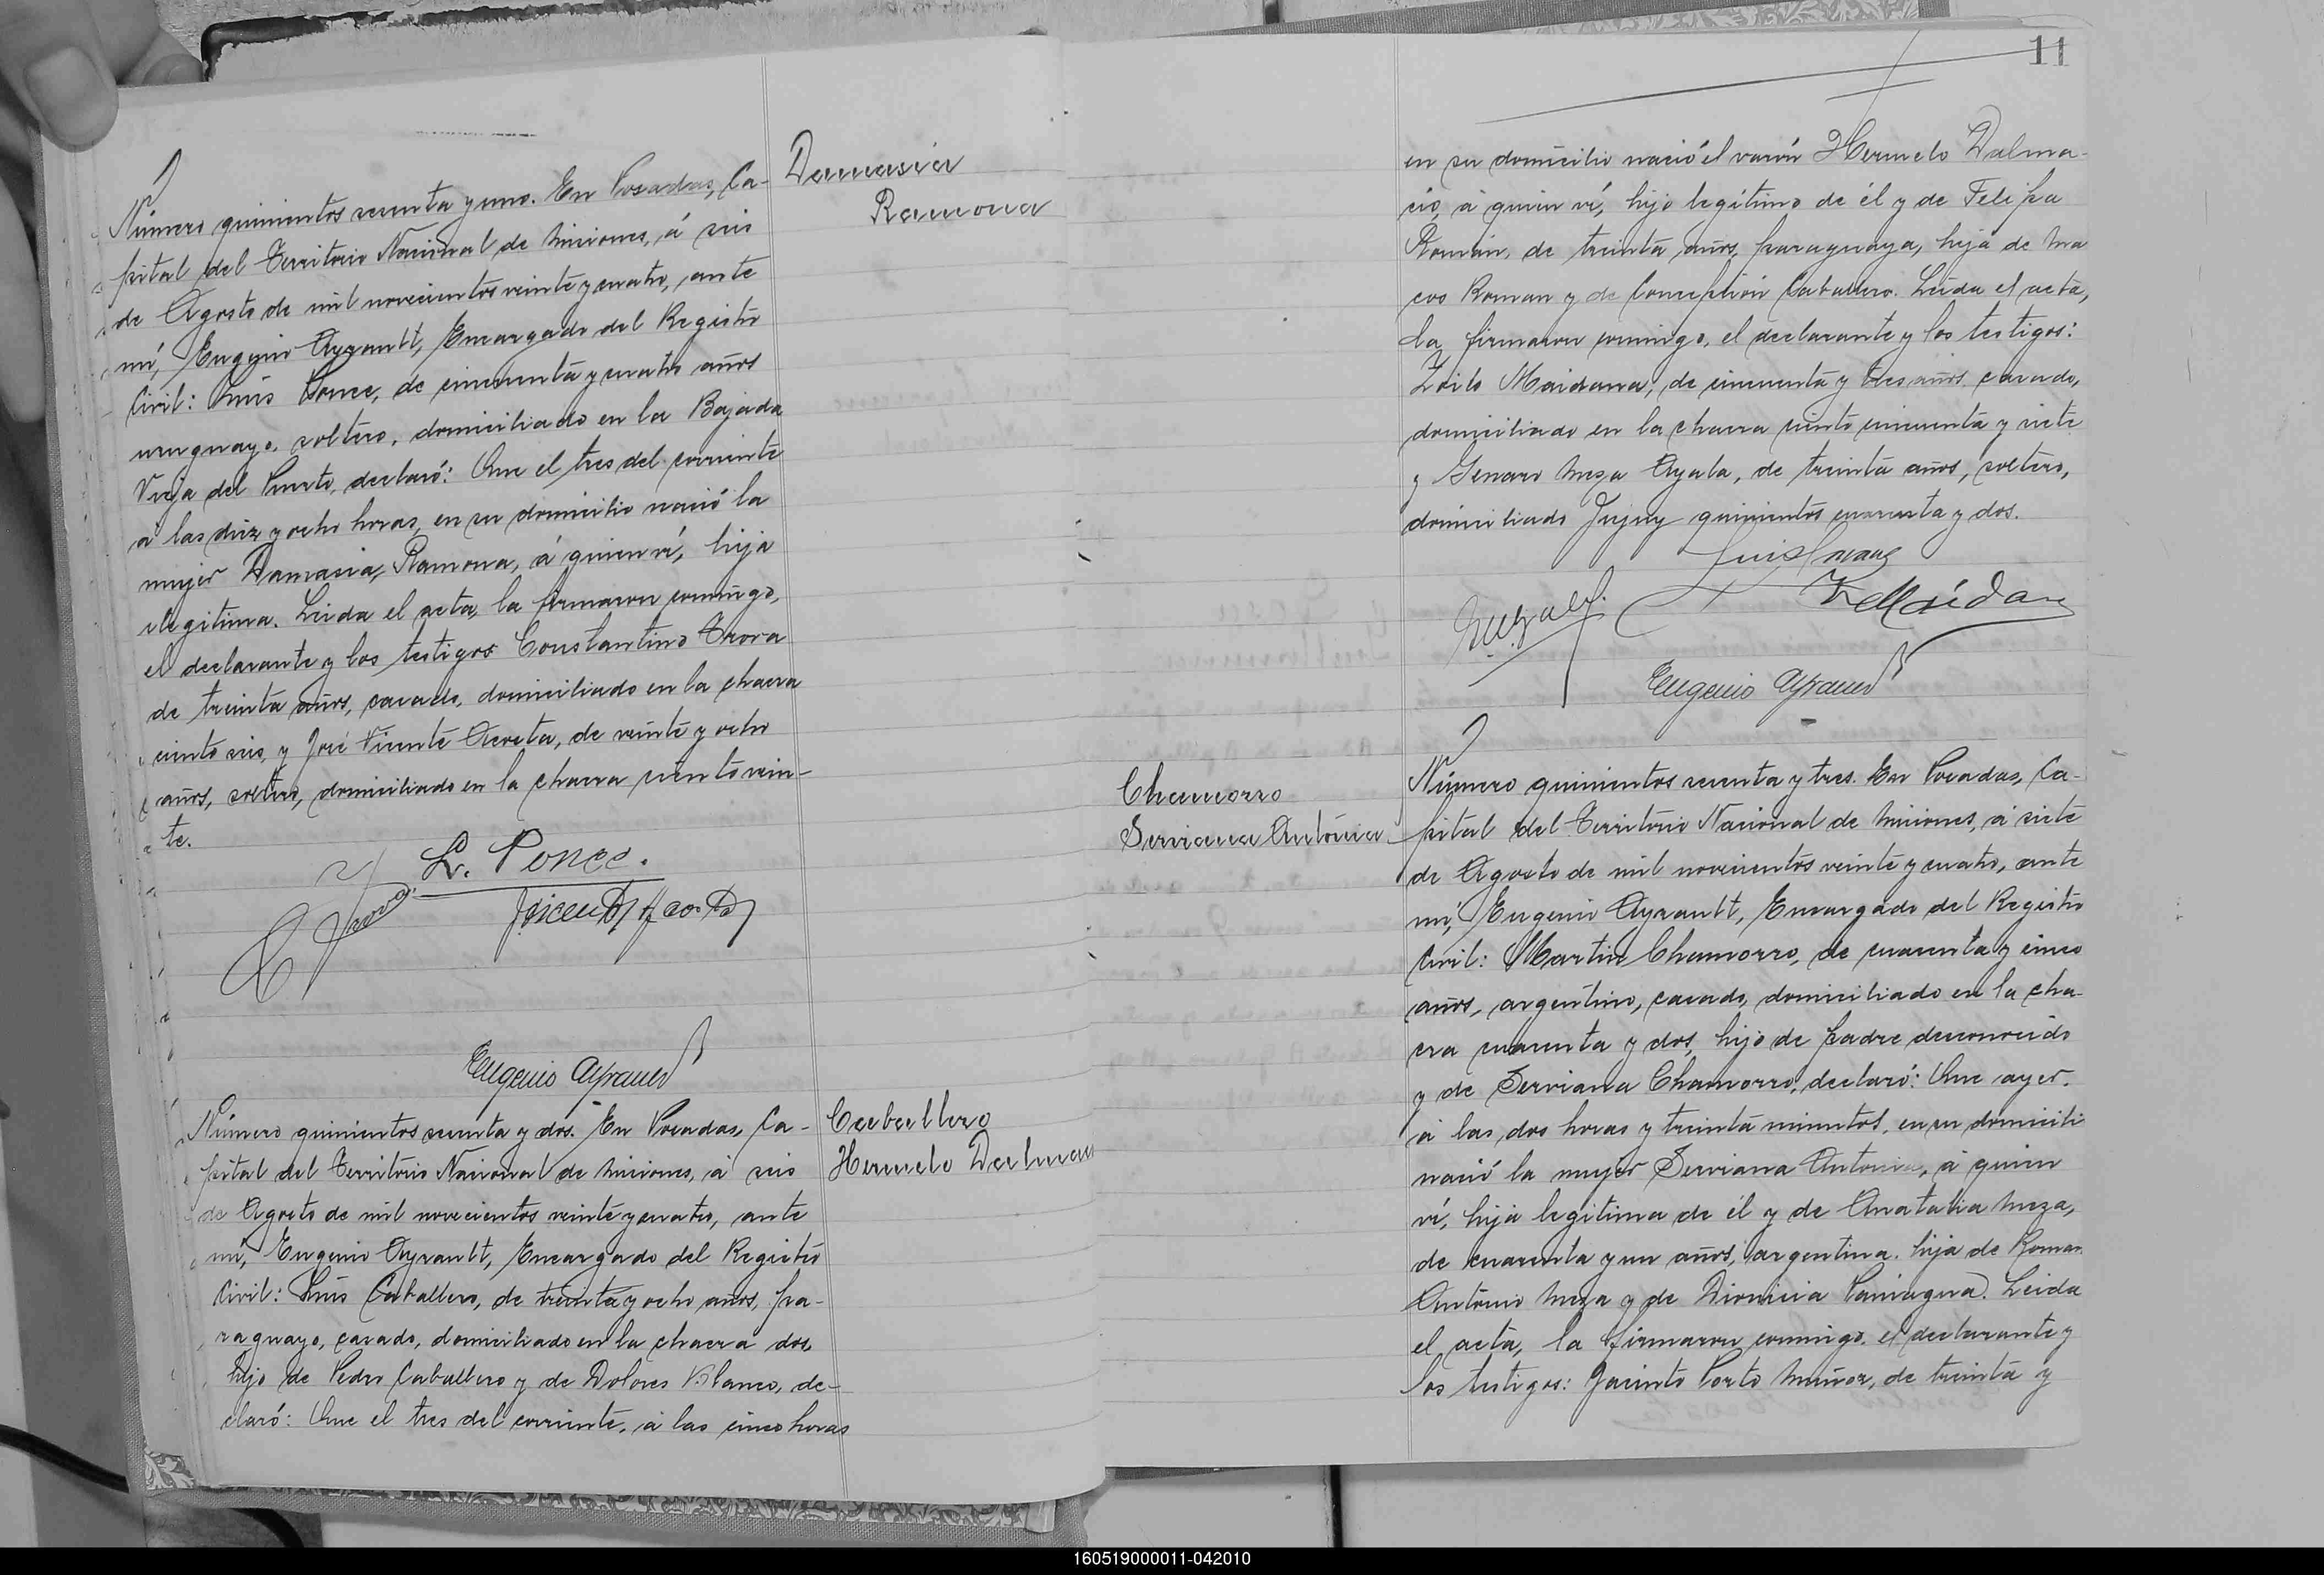 Número quinientos sesenta y uno. En Posadas, Ca-
pital del Territorio Nacional de Misiones, á seis
de Agosto de mil novecientos veinte y cuatro, ante
mí, Eugenio Ayrault, Encargado del Registro
Civil: Luis Ponce, de cincuenta y cuatro años
uruguayo, soltero, domiciliado en la Bajada
Vieja del Puerto, declaró: Que el tres del corriente
á las diez y ocho horas, en su domicilio nació la
mujer Damasia Ramona, á quien ví, hija
ilegitima. Leida el acta, la firmaron conmigo,
el declarante y los testigos Constantino
de treinta años, casado, domiciliado en la chacra
ciento seis, y José Vicente Acosta, de veinte y ocho
años, soltero, domiciliado en la chacra ciento vein-
te.
L. Ponce.
Eugenio Ayrault
Damasia
Ramona
Número quinientos sesenta y dos. En Posadas, Ca-
pital del Territorio Nacional de Misiones, á seis
de Agosto de mil novecientos veinte y cuatro, ante
mí, Eugenio Ayrault, Encargado del Registro
Civil: Luis Caballero, de treinta y ocho años, pa-
raguayo, casado, domiciliado en la chacra dos,
hijo de Pedro Caballero y de Dolores Blanco, de-
claró: Que el tres del corriente, á las cinco horas
Caballero
Hermelo Dalmacio
11
en su domicilio nació el varón Hermelo Dalma-
cio, á quien ví, hijo legítimo de él y de Felipa
Román, de treinta años, paraguaya, hija de Ma
cos Roman y de Concepción Caballero. Leida el acta,
la firmaron conmigo, el declarante y los testigos:
Zoilo Maidana, de cincuenta y tres años, casado,
domiciliado en la chacra ciento cincuenta y siete
y Genaro Meza Ayala, de treinta años, soltero,
domiciliado Jujuy quinientos cuarenta y dos.
Eugenio Ayrault
Chamorro
Serviana Antónia
Número quinientos sesenta y tres. En Posadas, Ca-
pital del Territorio Nacional de Misiones, á siete
de Agosto de mil novecientos veinte y cuatro, ante
mí, Eugenio Ayrault, Encargado del Registro
Civil: Martin Chamorro, de cuarenta y cinco
años, argentino, casado, domiciliado en la cha-
cra cuarenta y dos, hijo de padre desconocido
y de Serviana Chamorro, declaró: Que ayer,
á las dos horas y treinta minutos, en su domicili
nació la mujer Serviana Antonia, á quien
ví, hija legitima de él y de Anatalia Meza,
de cuarenta y un años, argentina, hija de Roman
Antonio Meza y de Dionicia. Leida
el acta, la firmaron conmigo, el declarante y
los testigos: Jacinto Porto Muñoz, de treinta y
160519000011-042010